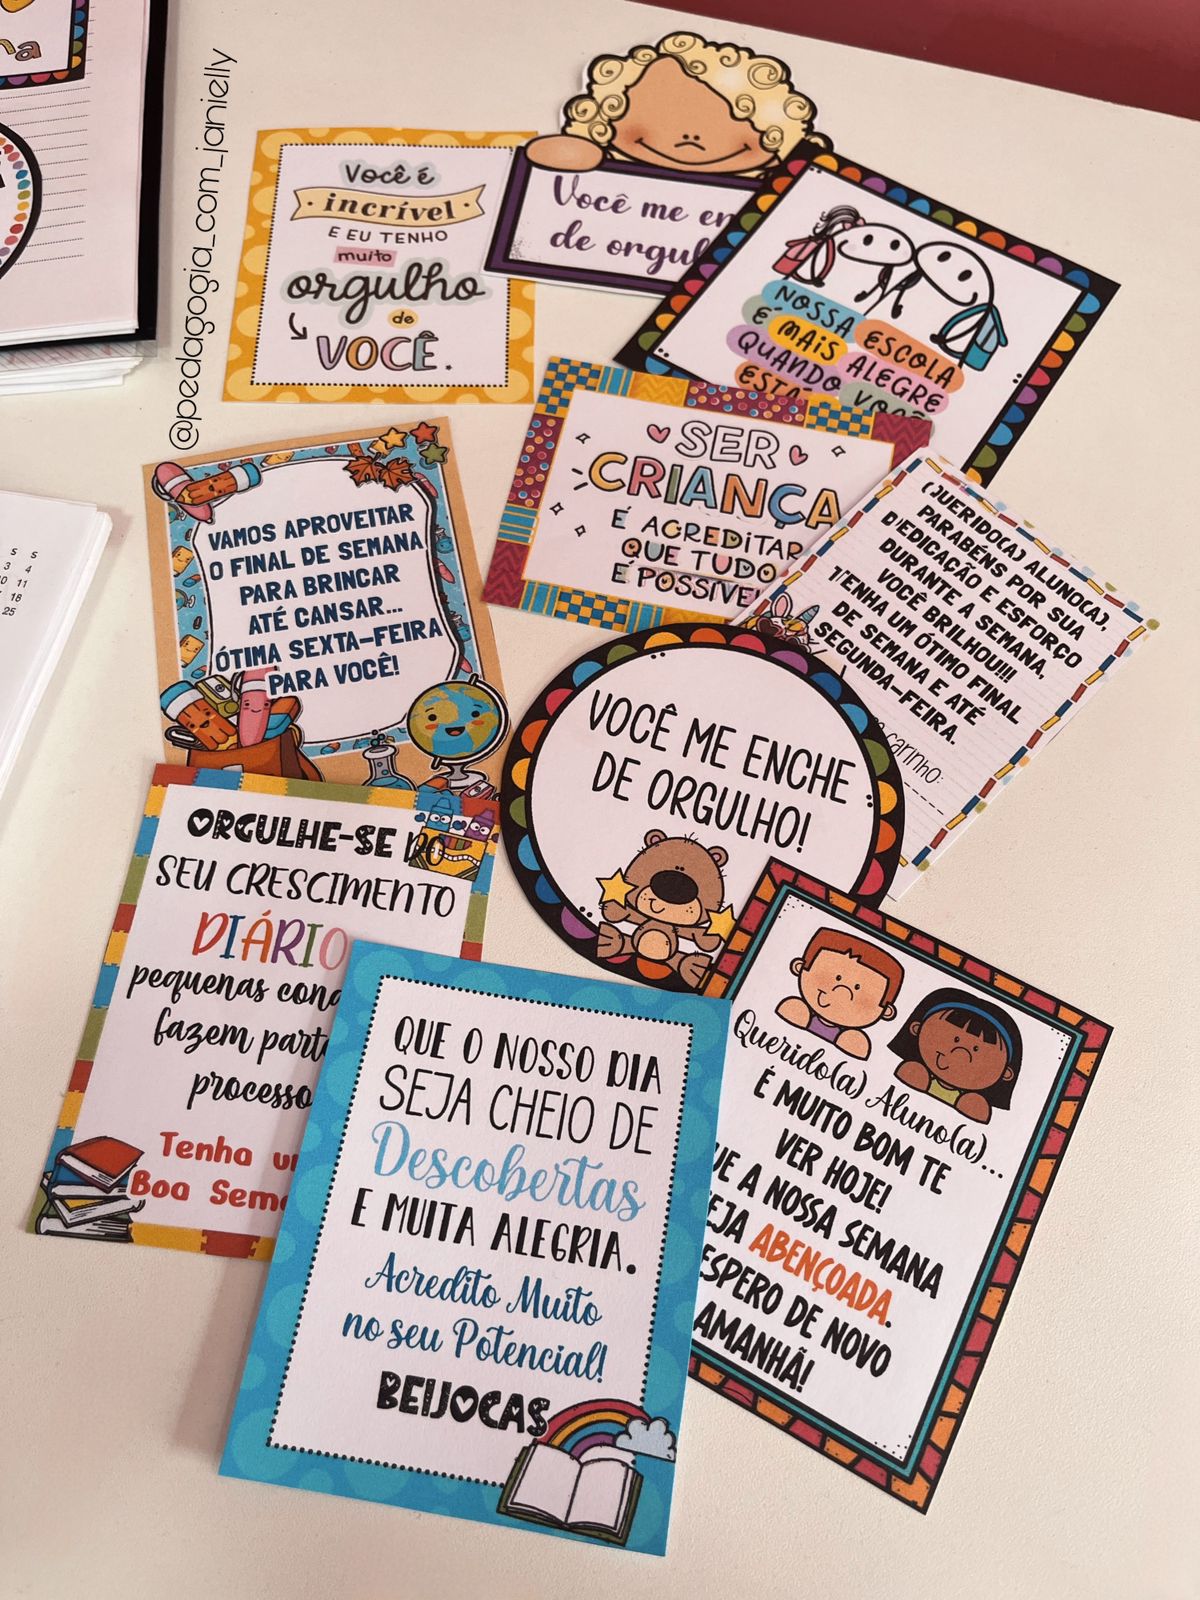 @pedagogia_com_janielly
Você é
incrível
E EU TENHO
muito
orgulho
de
VOCÊ.
Você me
de
NOSSA ESCOLA
É MAIS ALEGRE
QUANDO VOCÊ
SER
CRIANÇA
É ACREDITAR
QUE TUDO
É POSSÍVEL
VAMOS APROVEITAR
O FINAL DE SEMANA
PARA BRINCAR
ATÉ CANSAR...
ÓTIMA SEXTA-FEIRA
PARA VOCÊ!
QUERIDO(A) ALUNO(A),
PARABÉNS POR SUA
DEDICAÇÃO E ESFORÇO
DURANTE A SEMANA,
VOCÊ BRILHOU!!!!
TENHA UM ÓTIMO FINAL
DE SEMANA E ATÉ
SEGUNDA-FEIRA.
carinho:
VOCÊ ME ENCHE
DE ORGULHO!
ORGULHE-SE DO
SEU CRESCIMENTO
DIÁRIO
pequenas
fazem
processo
Tenha
Boa
QUE O NOSSO DIA
SEJA CHEIO DE
Descobertas
E MUITA ALEGRIA.
Acredito Muito
no seu Potencial!
BEIJOCAS
Querido(a) Aluno(a)...
É MUITO BOM TE
VER HOJE!
A NOSSA SEMANA
ABENÇOADA.
ESPERO DE NOVO
AMANHÃ!
S S
3 4
10 11
18
25